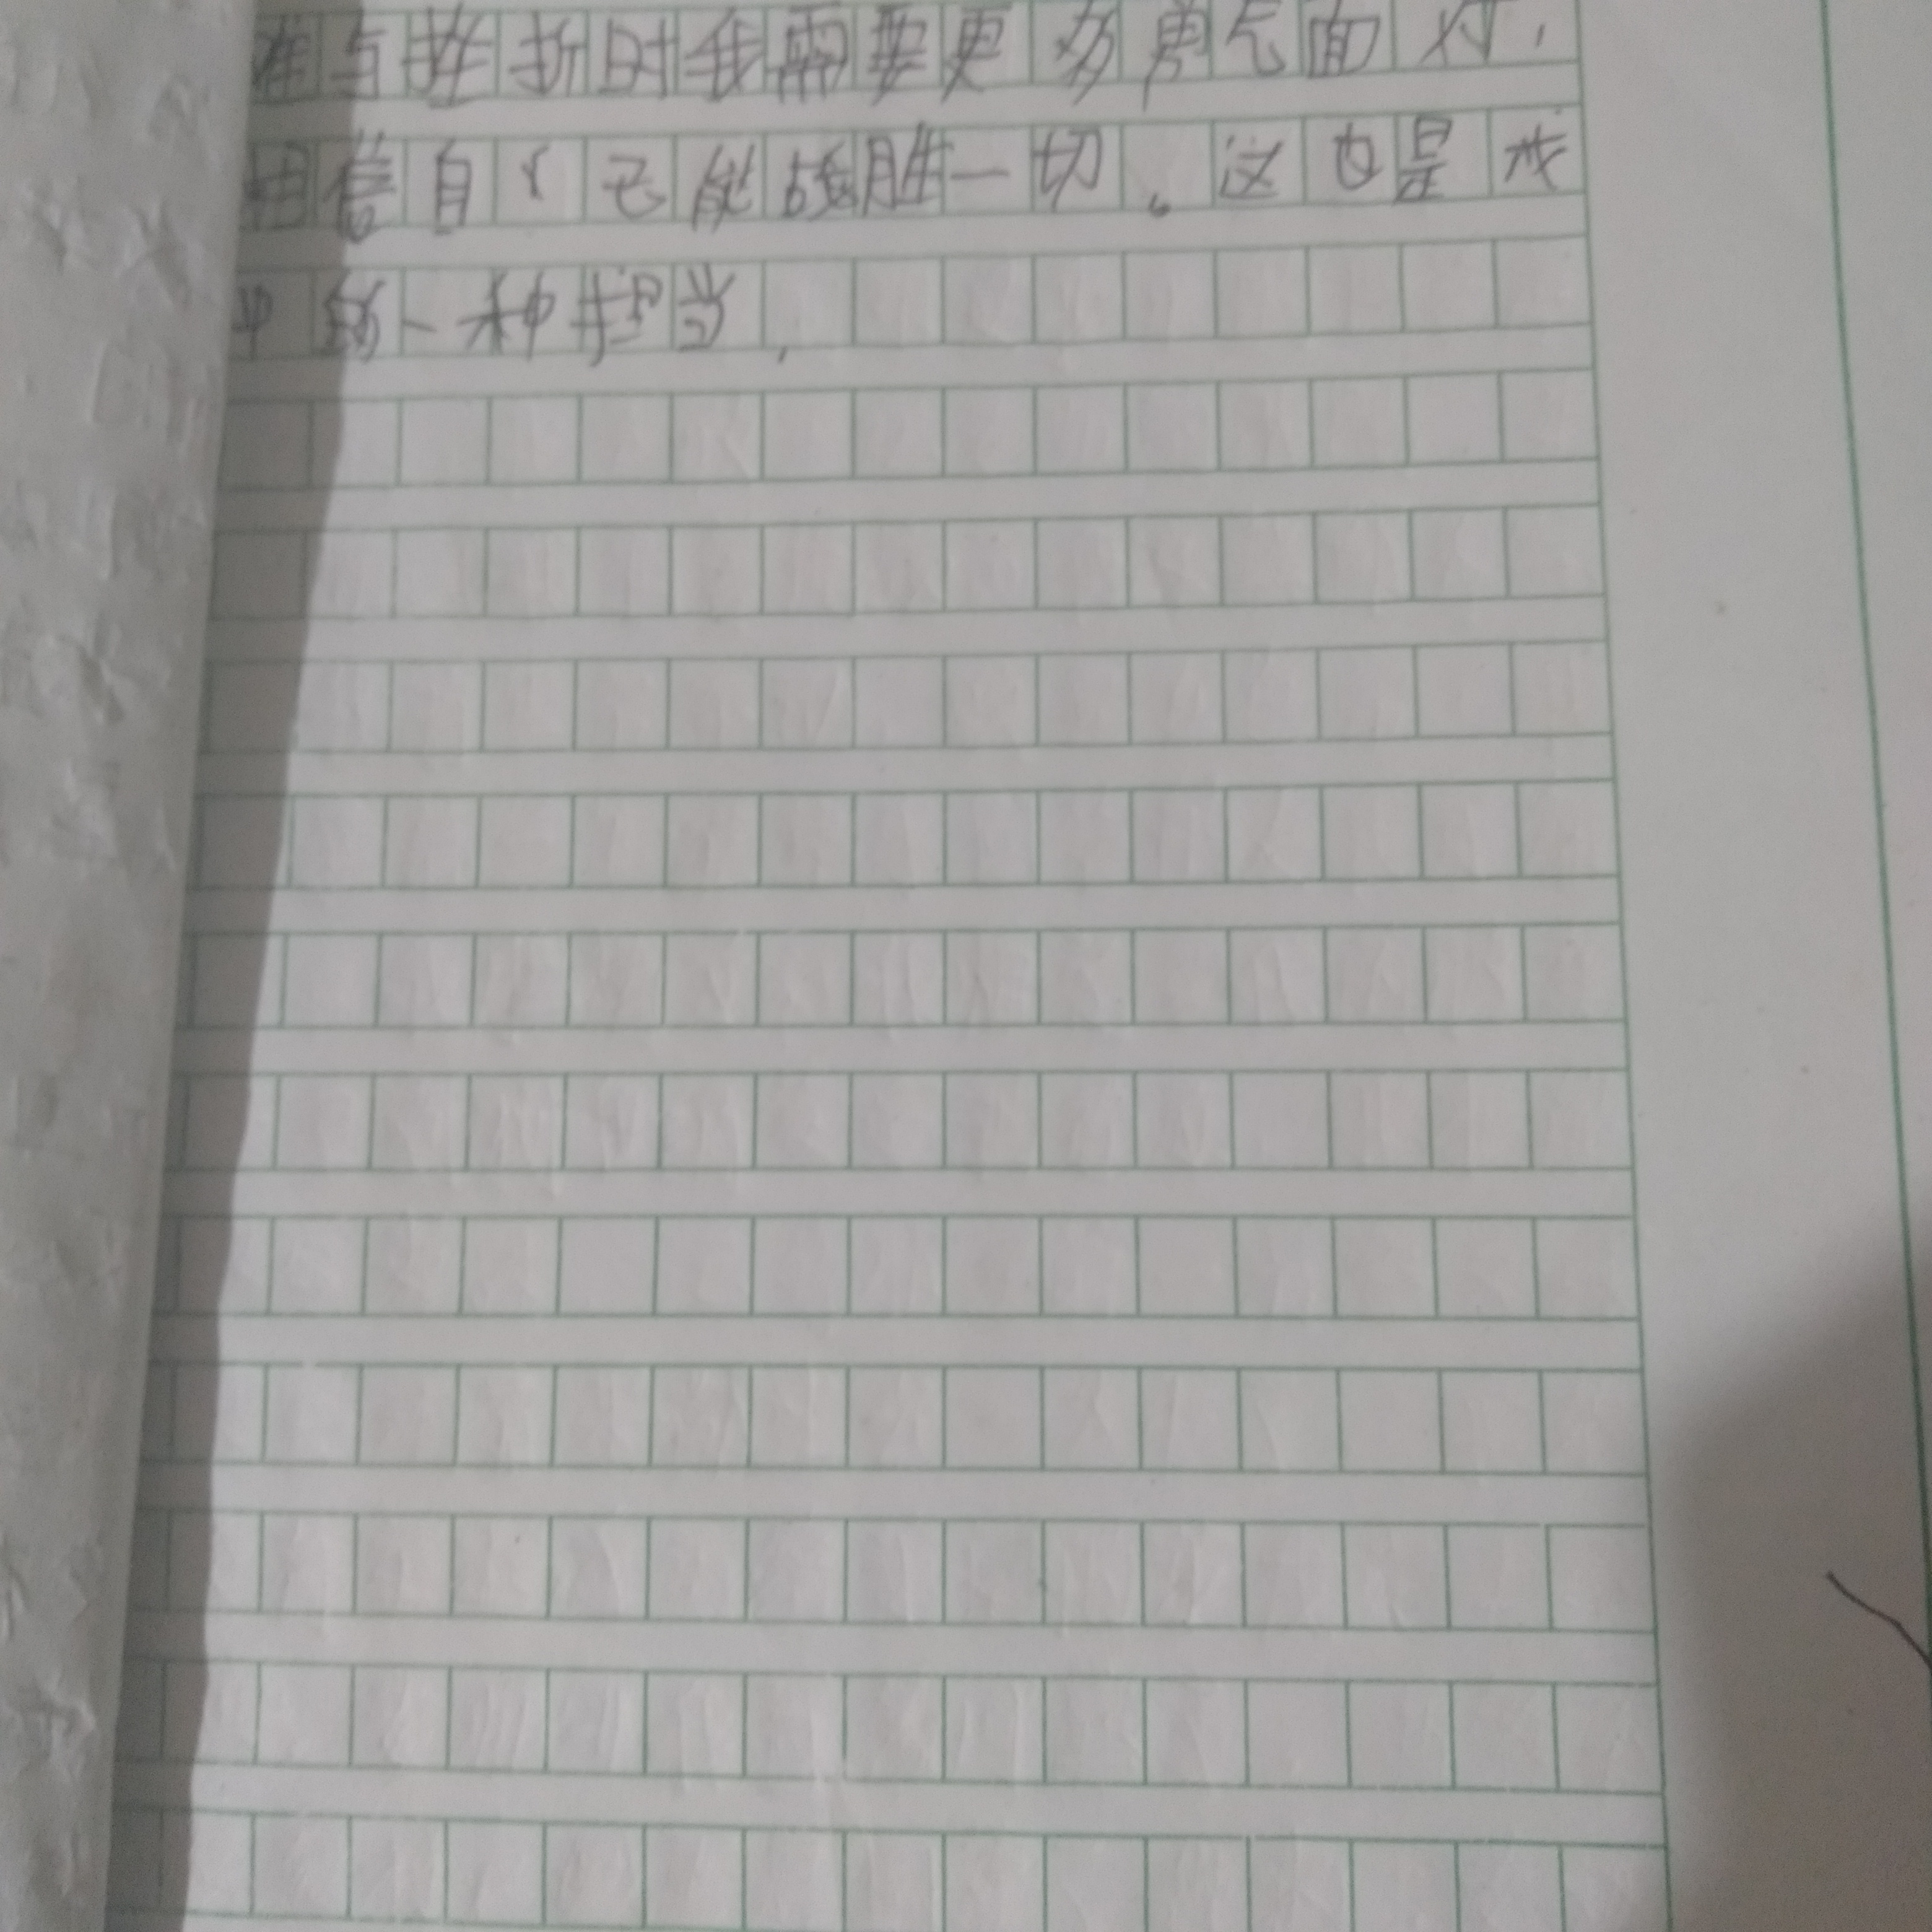 难与挫折时我需要更多勇气面对,
相信自己能战胜一切。这也是成
中的一种担当.